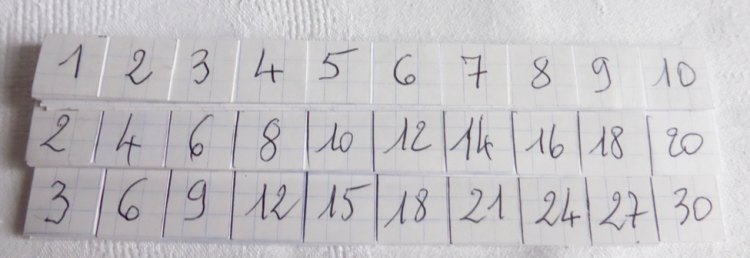 1 2 3 4 5 6 7 8 9 10
2 4 6 8 10 12 14 16 18 20
3 6 9 12 15 18 21 24 27 30